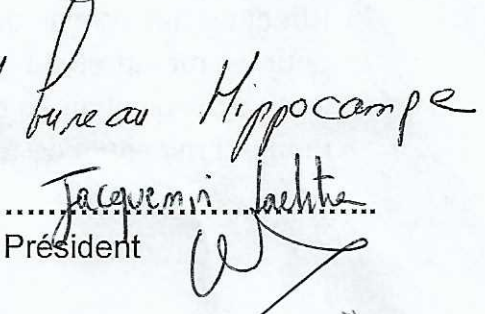 bureau Hippocampe
Jacquemin Laetitia
Président